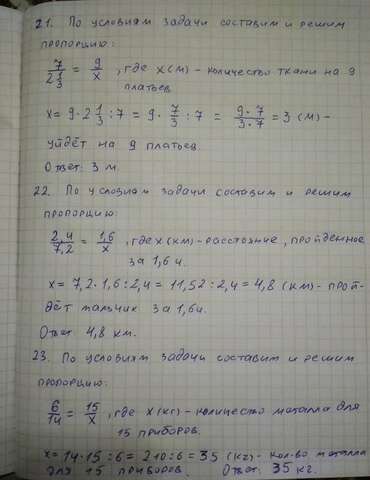 21. По условиям задачи составим и решим
пропорцию:
7/2 1/3 = 9/x, где x(м) - количество ткани на 9
платьев
x = 9 · 2 1/3 : 7 = 9 · 7/3 : 7 = 9 · 7/3 · 7 = 3 (м) -
уйдёт на 9 платьев.
Ответ: 3 м.
22. По условиям задачи составим и решим
пропорцию:
2,4/7,2 = 1,6/x, где x(км) - расстояние, пройденное
за 1,6 ч.
x = 7,2 · 1,6 : 2,4 = 11,52 : 2,4 = 4,8 (км) - прой-
дёт мальчик за 1,6 ч.
Ответ 4,8 км.
23. По условиям задачи составим и решим
пропорцию:
6/14 = 15/x, где x(кг) - количество металла для
15 приборов.
x = 14 · 15 : 6 = 210 : 6 = 35 (кг) - кол-во металла
для 15 приборов. Ответ: 35 кг.